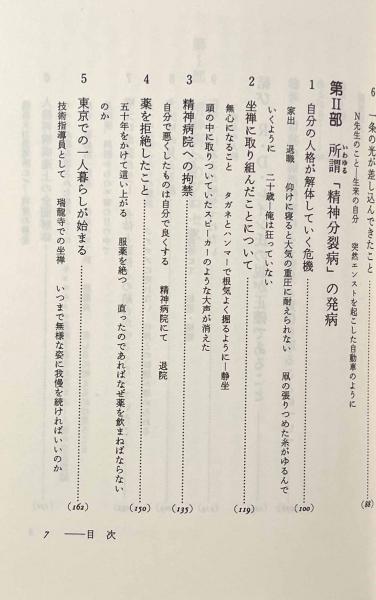 6 一条の光が差し込んできたこと……(88)
N先生のこと―生来の自分 突然エンストを起こした自動車のように
第Ⅱ部 所謂「精神分裂病」の発病
いわゆる
1 自分の人格が解体していく危機……(100)
家出 退職 仰けに寝ると大気の重圧に耐えられない 凧の張りつめた糸がゆるんで
いくように 二十歳―俺は狂っていない
2 坐禅に取り組んだことについて……(119)
無心になること タガネとハンマーで根気よく掘るように―静坐
頭の中に取りついていたスピーカーのような大声が消えた
3 精神病院への拘禁……(135)
自分で悪くしたものは自分で良くする 精神病院にて 退院
4 薬を拒絶したこと……(150)
五十年をかけて這い上がる 服薬を絶つ 直ったのであればなぜ薬を飲まねばならない
のか
5 東京での一人暮らしが始まる……(162)
技術指導員として 瑞龍寺での坐禅 いつまで無様な姿に我慢を続ければいいのか
7 ――目 次